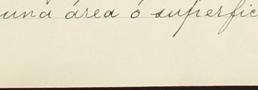 una área ó superfic